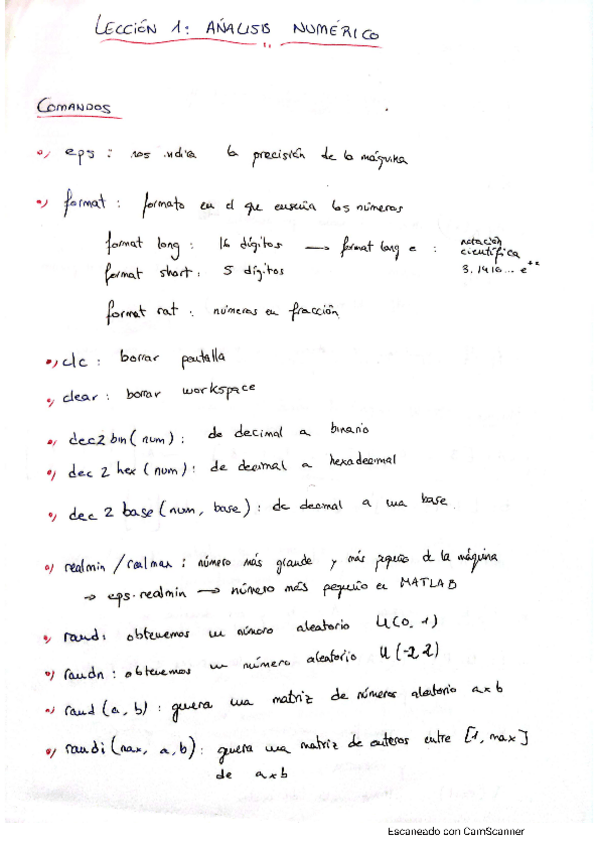 LECCIÓN 1: AÑALISIS NUMÉRICO
1.
COMANDOS
eps : nos indica la precisión de la máquina
format : formato en el que enseña los números
format long : 16 dígitos → format long e : notación científica
3.1416... e**
format short : 5 dígitos
format rat : números en fracción
clc : borrar pantalla
clear : borrar workspace
dec2bin(num) : de decimal a binario
dec 2 hex (num) : de decimal a hexadecimal
dec 2 base (num, base) : de decimal a una base
realmin / realmax : número más grande y más pequeño de la máquina
→ eps·realmin → número más pequeño en MATLAB
rand : obtenemos un número aleatorio U(0, 1)
randn : obtenemos un número aleatorio U(-2 2)
rand (a, b) : genera una matriz de números aleatorio axb
randi (max, a, b) : genera una matriz de enteros entre [1, max]
de axb
Escaneado con CamScanner